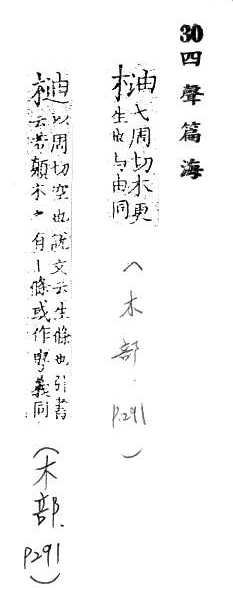 30 四聲篇海
七周切木更
生也与由同
(木部. p.291)
以周切空也說文云生條也引書
云若顛木之有丨條或作甹義同
(木部. p291)